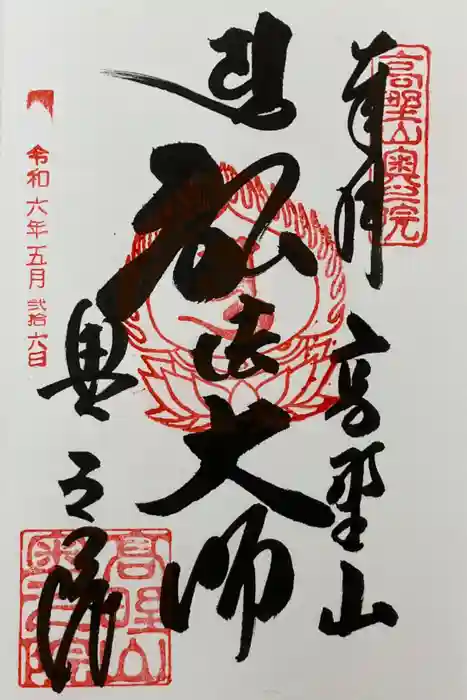 高野山奥之院
奉拝
高野山
弘法大師
奥之院
令和六年五月弐拾六日
高野山
奥之院